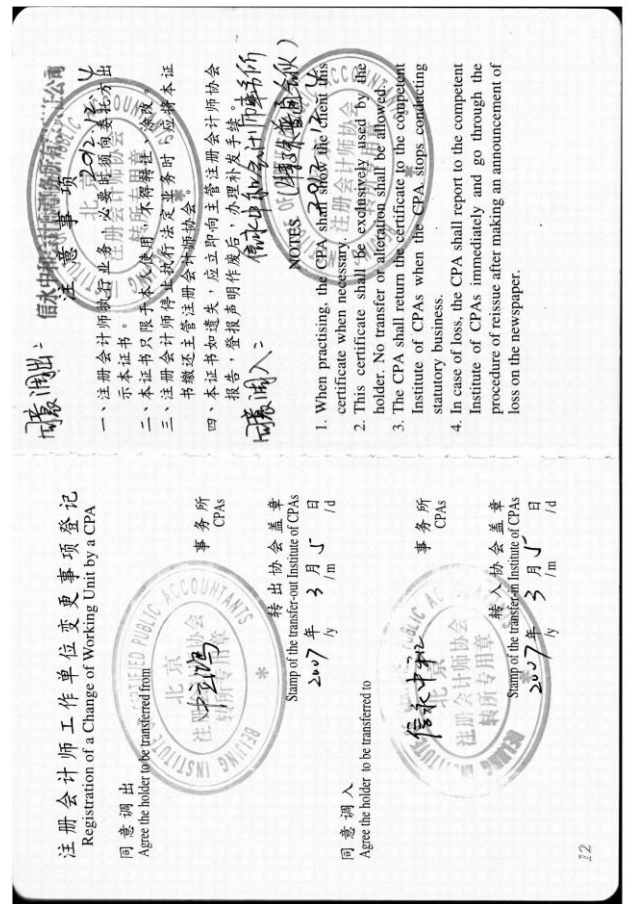 注册会计师工作单位变更事项登记
Registration of a Change of Working Unit by a CPA
同意调出
Agree the holder to be transferred from
事务所
CPAs
BEIJING INSTITUTE OF CERTIFIED PUBLIC ACCOUNTANTS
北京
注册会计师协会
转所专用章
转出协会盖章
Stamp of the transfer-out Institute of CPAs
2007年 3月5日
/y /m /d
同意调入
Agree the holder to be transferred to
信永中和
事务所
CPAs
北京
注册会计师协会
转所专用章
转入协会盖章
Stamp of the transfer-in Institute of CPAs
2007年 3月5日
/y /m /d
12
同意调出:
2012.12.4
注意事项
一、注册会计师执行业务,必要时须向委托方出
示本证书。
二、本证书只限于本人使用,不得转让、涂改。
三、注册会计师停止执行法定业务时,应将本证
书缴还主管注册会计师协会。
四、本证书如遗失,应立即向主管注册会计师协会
报告,登报声明作废后,办理补发手续。
同意调入:
信永中和会计师事务所
(特殊普通合伙)
2012.12.4
NOTES
1. When practising, the CPA shall show the client this
certificate when necessary.
2. This certificate shall be exclusively used by the
holder. No transfer or alteration shall be allowed.
3. The CPA shall return the certificate to the competent
Institute of CPAs when the CPA stops conducting
statutory business.
4. In case of loss, the CPA shall report to the competent
Institute of CPAs immediately and go through the
procedure of reissue after making an announcement of
loss on the newspaper.